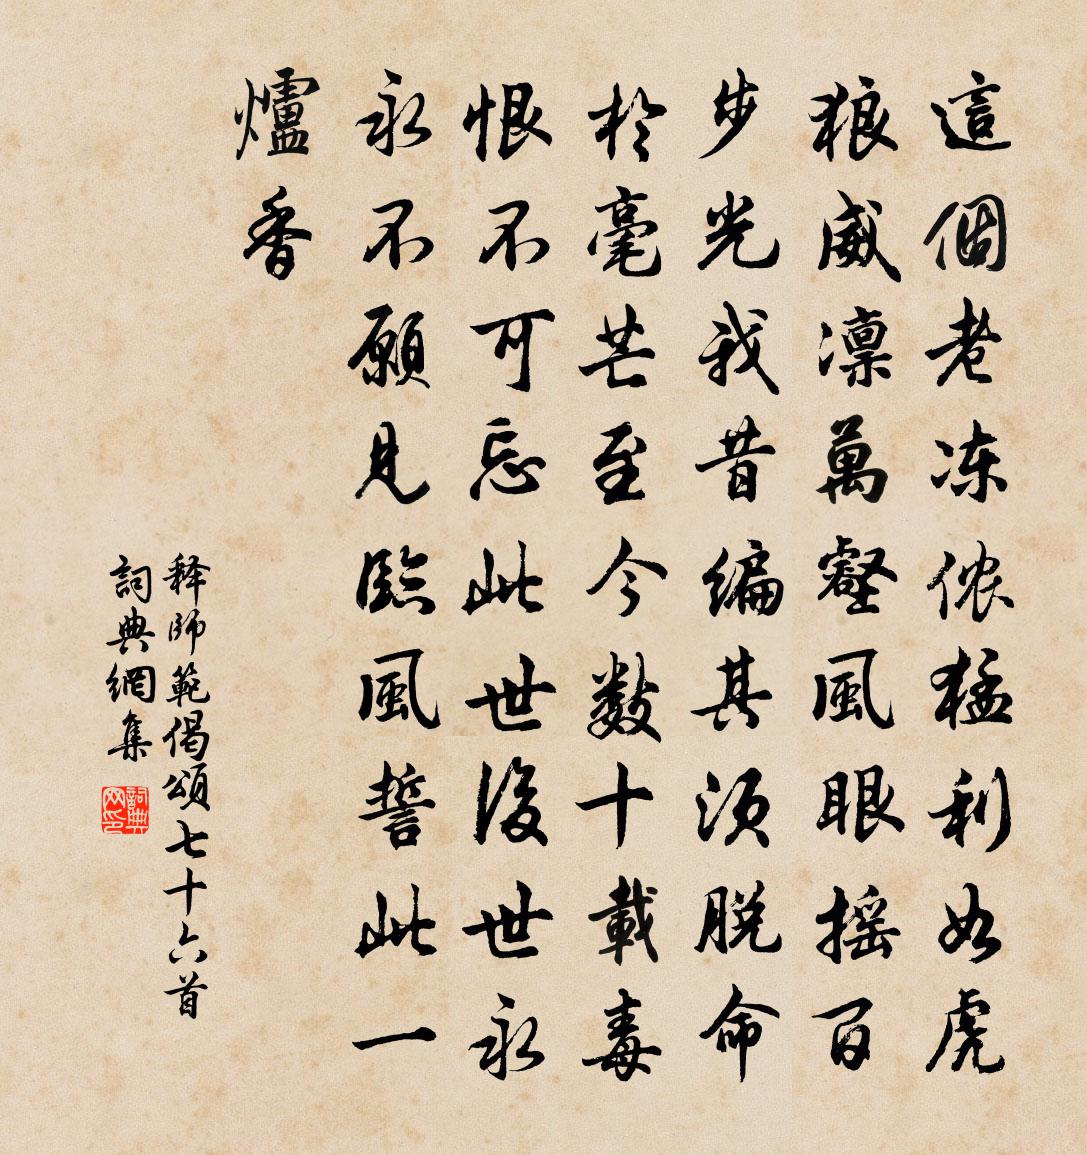 這個老冻侬猛利如虎
狼威凛萬壑風眼摇百
步光我昔编其须脱命
於毫芒至今数十載毒
恨不可忘此世後世永
永不願見臨風誓此一
爐香
释師範偈頌七十六首
詞典網集
詞典网印